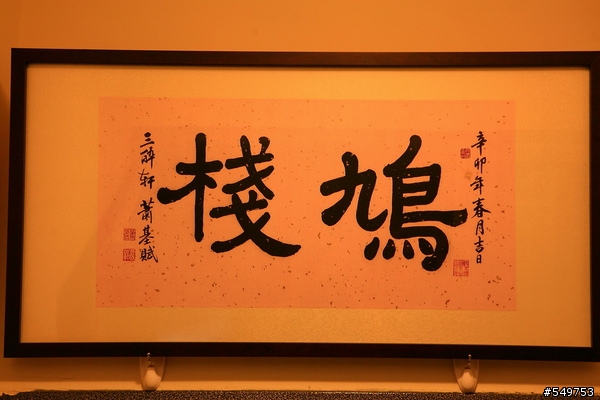 辛卯年春月吉日
鳩棧
三碎軒 蕭基賦
#549753